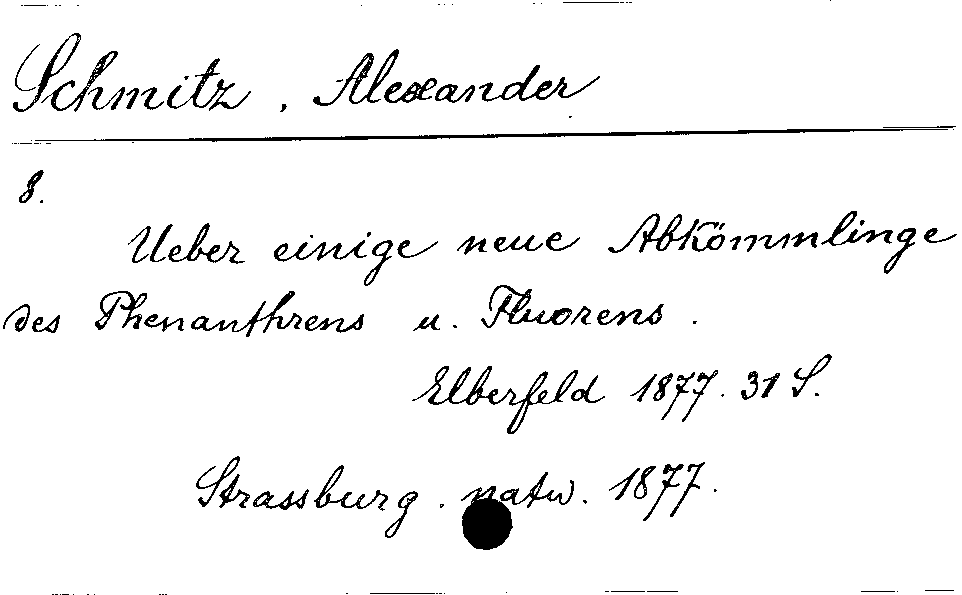 Schmitz, Alexander
8.
Ueber einige neue Abkömmlinge
des Phenanthrens u. Fluorens.
Elberfeld 1877. 31 S.
Strassburg. natw. 1877.